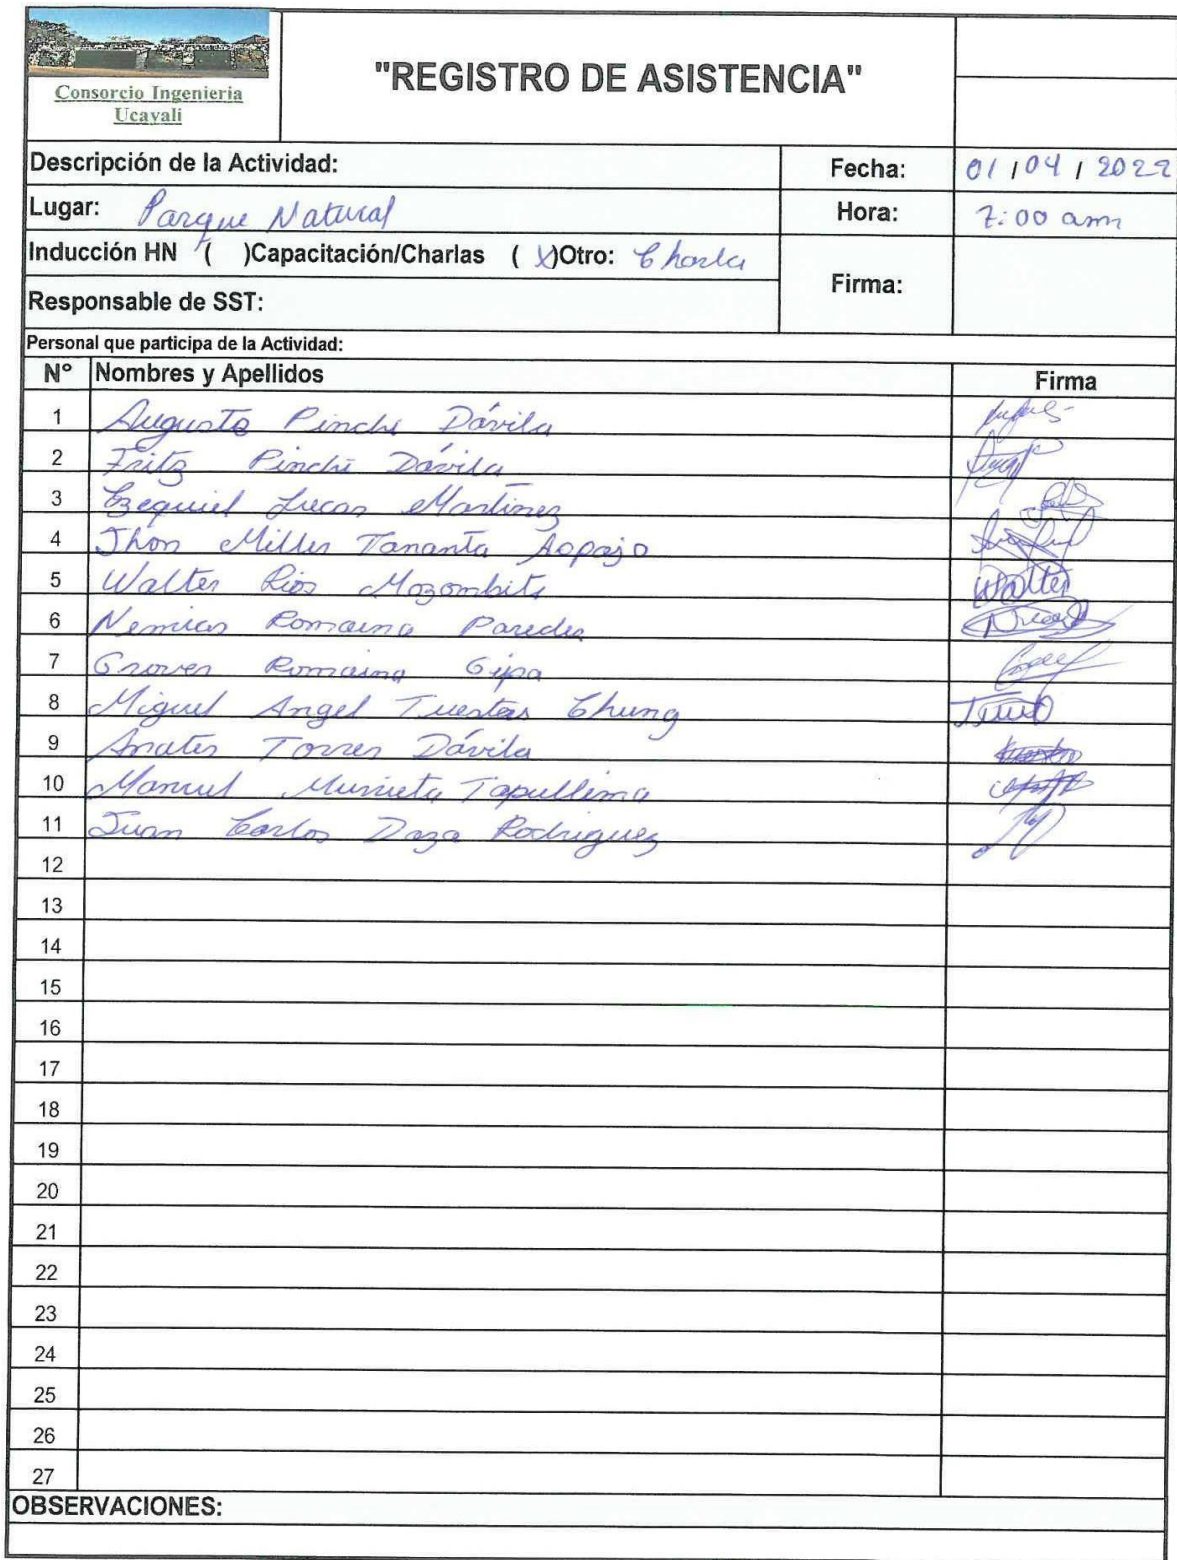 Consorcio Ingenieria
Ucayali
"REGISTRO DE ASISTENCIA"
Descripción de la Actividad:
Fecha: 01/04/2022
Lugar: Parque Natural
Hora: 7:00 am
Inducción HN ( )Capacitación/Charlas (X)Otro: Charla
Firma:
Responsable de SST:
Personal que participa de la Actividad:
N° Nombres y Apellidos Firma
1 Augusto Pinche Dávila
2 Fritz Pinche Dávila
3 Ezequiel Lucas Martinez
4 Jhon Miller Tananta
5 Walter Rios Mozombite Walter
6 Nemias Romaina Paredes
7 Grover Romaina Gipa
8 Miguel Angel Tuestas Chung
9 Torres Dávila
10 Manuel Murrieta Tapullima
11 Juan Carlos Daza Rodriguez
12
13
14
15
16
17
18
19
20
21
22
23
24
25
26
27
OBSERVACIONES: